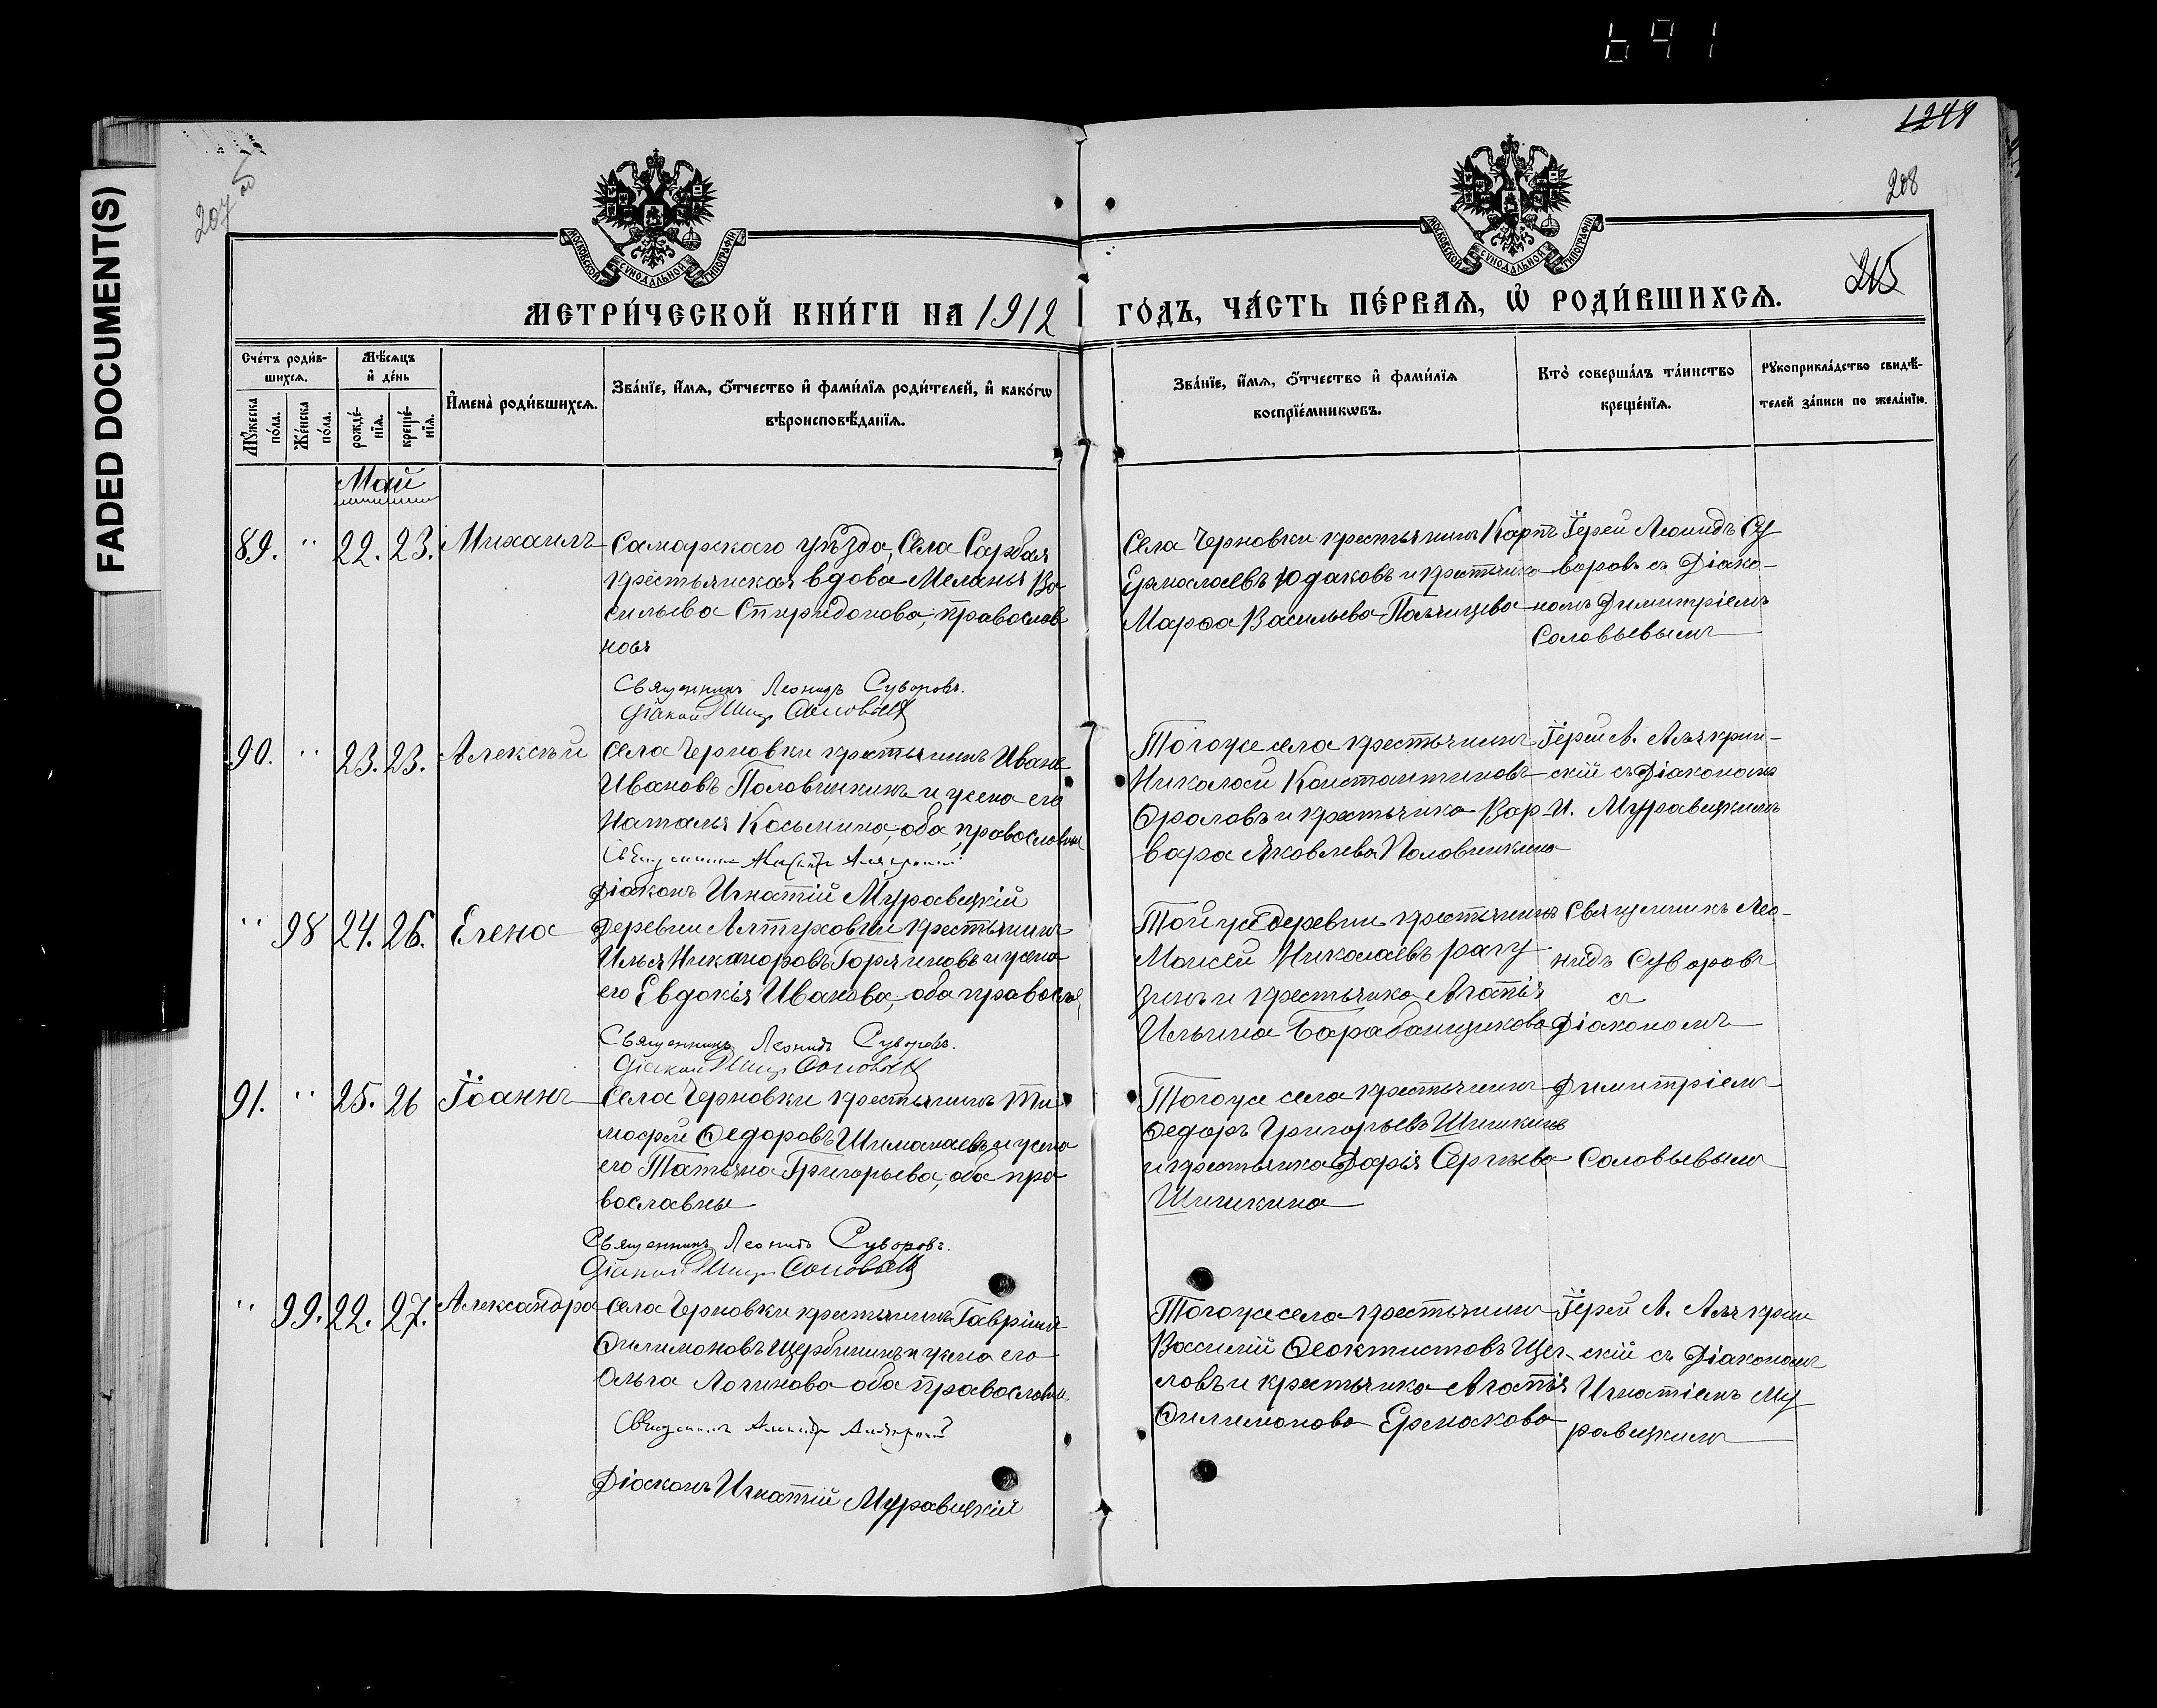 691
FADED DOCUMENT(S)
207 об
1248
208
215
МОСКОВСКОЙ СУНОДАЛЬНОЙ ТИПОГРАФИИ
МОСКОВСКОЙ СУНОДАЛЬНОЙ ТИПОГРАФИИ
МЕТРИ́ЧЕСКОЙ КНИ́ГИ НА 1912 ГО́ДЪ, ЧА́СТЬ ПЕ́РВАЯ, Ѡ҆ РОДИ́ВШИХСЯ.
Сче́тъ роди́в-
шихся.
Мѣ́сяцъ
и҆ де́нь
Мꙋ́жеска
по́ла.
Же́нска
по́ла.
рожде́-
нїя.
креще́-
нїя.
И҆мена̀ роди́вшихся.
Зва́нїе, и҆́мя, ѻ҆́тчество и҆ фами́лїя роди́телей, и҆ како́гѡ
вѣроисповѣ́данїя.
Зва́нїе, и҆́мя, ѻ҆́тчество и҆ фами́лїя
воспрїе́мникѡвъ.
Кто̀ соверша́лъ та́инство
креще́нїя.
Рꙋкоприкла́дство свидѣ́-
телей за́писи по жела́нїю.
Май
89. " 22. 23. Михаилъ
Самарскаго уѣзда, Села Сарбая
крестьянская вдова Меланья Ва
сильева Спиридонова, православ
ная
Священникъ Леонидъ Суворовъ.
Діаконъ Соловьевъ
Села Черновки крестьянинъ Карпъ
Ермолаевъ Юдаковъ и крестьянка
Марѳа Васильева
Іерей Леонидъ Су
воровъ съ Діако-
номъ Димитріемъ
Соловьевымъ
90. " 23. 23. Алексѣй
Села Черновки крестьянинъ Иванъ
Ивановъ Половинкинъ и жена его
Наталья Косьмина, оба православны
Діаконъ Игнатій Муравицкій
Тогоже села крестьянинъ
Николай Константиновъ
Ѳроловъ и крестьянка Вар
вара Яковлева Половинкина
Іерей А. Аля­крин-
скій съ Діакономъ
И. Муравицкимъ
" 98 24. 26. Елена
Деревни Алтуховки крестьянинъ
Илья Никаноровъ Горяиновъ и жена
его Евдокія Иванова, оба правосл
Священникъ Леонидъ Суворовъ.
Діаконъ Соловьевъ
Тойже деревни крестьянинъ
Моисей Николаевъ рагу
зинъ и крестьянка Агапія
Ильина Барабанщикова
Священникъ Лео-
нидъ Суворовъ
съ
Діакономъ
91. " 25. 26 Іоаннъ
Села Черновки крестьянинъ Ти
моѳей Ѳедоровъ Шиманаевъ и жена
его Татьяна Григорьева, оба пра
вославны
Священникъ Леонидъ Суворовъ.
Діаконъ Соловьевъ
Тогоже села крестьянинъ
Ѳедоръ Григорьевъ Шишкинъ
и крестьянка Дарія Сергѣева
Шишкина
Димитріемъ
Соловьевымъ
" 99. 22. 27. Александра
Села Черновки крестьянинъ Гавріилъ
Филимоновъ Щербининъ и жена его
Ольга Логинова оба православны.
Діаконъ Игнатій Муравицкій
Тогоже села крестьянинъ
Василій Ѳеоктистовъ Щег
ловъ и крестьянка Агапія
Филимонова Ермакова
Іерей А. Алякрин
скій съ Діакономъ
Игнатіемъ Му
равицкимъ